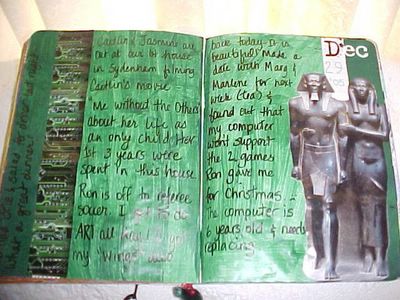 came to dinner last night
what a great dinner
Caitlin & Jasmine are
out at our 1st house
in Sydenham filming
Caitlin's movie -
"Me without the Others"
about her life as
an only child. Her
1st 3 years were
spent in this house.
Ron is off to referee
soccer. I get to do
ART all day! I got
my "Wings"
back today. It is
beautiful! Made a
date with Marg &
Marlene for next
week (tea) &
found out that
my computer
wont support
the 2 games
Ron gave me
for Christmas -
the computer is
6 years old & needs
replacing.
Dec
29